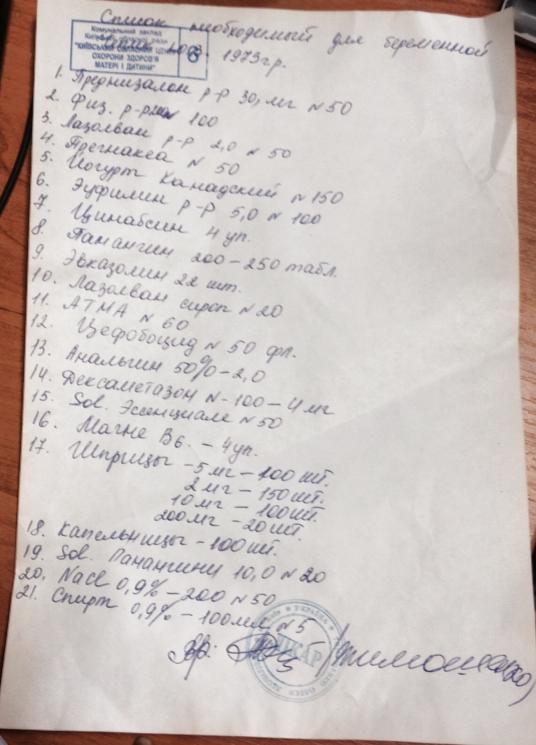 Список необходимый для беременной
1973 гр.
Комунальний заклад
"КИЇВСЬКИЙ ОБЛАСНИЙ ЦЕНТР
ОХОРОНИ ЗДОРОВ'Я
МАТЕРІ І ДИТИНИ"
1. Преднизалон р-р 30, мг №50
2. Физ. р-р № 100
3. Лазолван р-р 2,0 №50
4. Прегнакеа №50
5. Йогурт Канадский №150
6. Эуфилин р-р 5,0 №100
7. Цинабсин 4 уп.
8. Панангин 200-250 табл.
9. Эвказолин 22 шт.
10. Лазолван сироп №20
11. АТМА №60
12. Цефобоцид №50 фл.
13. Анальгин 50%-2,0
14. Дексаметазон N-100-4 мг
15. Sol. Эссенциале №50
16. Магне В6. - 4 уп.
17. Шприцы - 5 мг - 100 шт.
2 мг - 150 шт.
10 мг - 100 шт.
200 мг - 20 шт.
18. Капельницы - 100 шт.
19. Sol. Панангини 10,0 №20
20. NaCl 0,9% - 200 №50
21. Спирт 0,9% - 100 мл №5
ЛІКАР